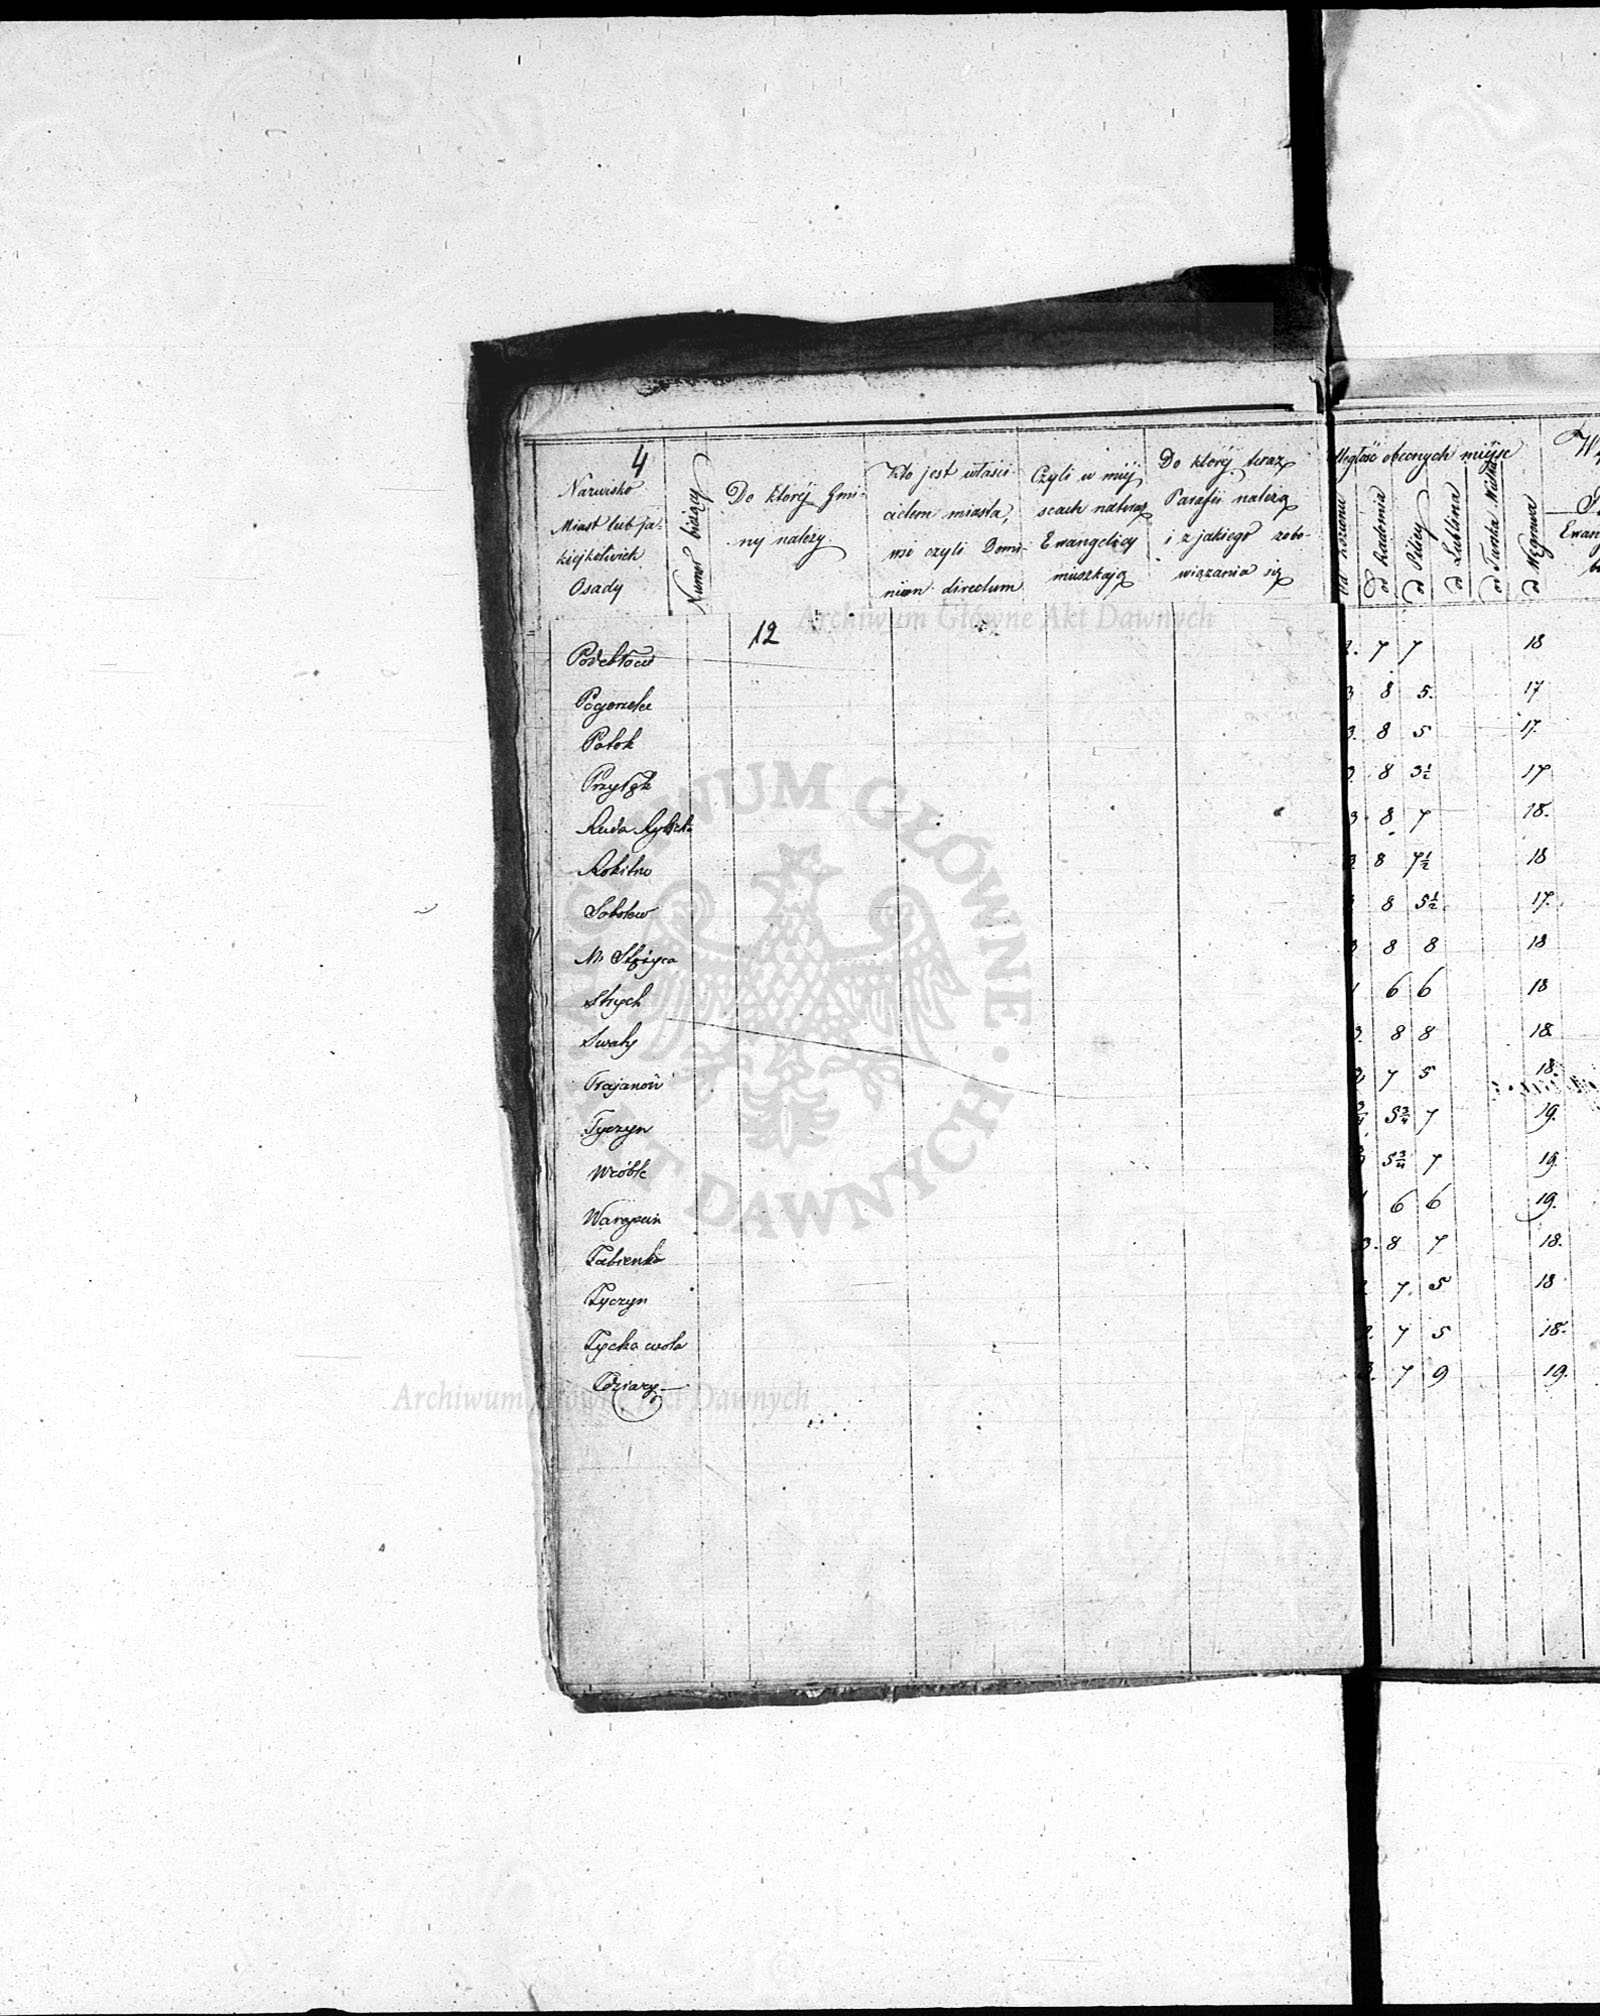 4
Nazwisko
Miast lub ja-
kiejkolwiek
Osady
Numer bieżący
Do którey Gmi-
ny należy
Kto jest właści-
cielem miasta,
wsi czyli Domi-
nium directum
Czyli w miej-
scach nateraz
Ewangelicy
mieszkają
Do którey teraz
Parafii należą
i z jakiego zobo-
wiązania się
obecnych miejsc
od Radomia
od Pilicy
od Lublina
od Węgrowa
Ewang
12
Podebłocie 7 7 18
Pogorzelec 3 8 5. 17
Potok 3. 8 5 17.
Przyłęk 8 3½ 17
Ruda 3 8 7 18.
Rokitno 8 7½ 18
Sobolew 8 5½ 17.
M. Stężyca 8 8 18
Strych 6 6 18
Swaty 3. 8 8 18
Trajanów 7 5 18.
Tyczyn 5¾ 7 19.
Wróble 5¾ 7 19.
6 6 19.
Żabieniec 3. 8 7 18.
Życzyn 7. 5 18
Życka wola 7 5 18.
Zdziary 7 9 19.
Archiwum Główne Akt Dawnych
ARCHIWUM GŁÓWNE AKT DAWNYCH
Archiwum Główne Akt Dawnych